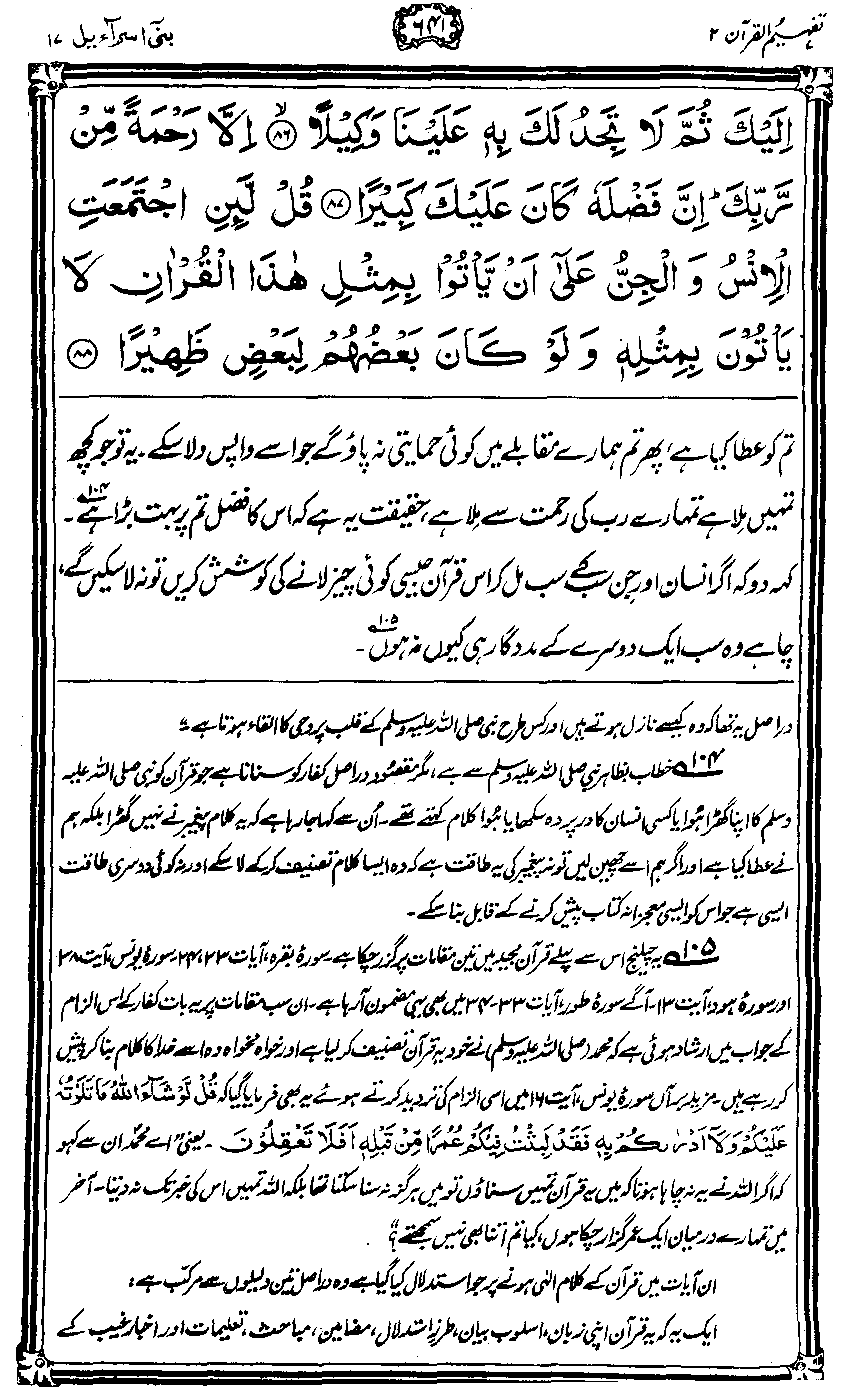 تفہیم القرآن ۲
۶۴۱
بنی اسرآءیل ۱۷
اِلَيْكَ ثُمَّ لَا تَجِدُ لَكَ بِهٖ عَلَيْنَا وَكِيْلًا ۙ﴿۸۶﴾ اِلَّا رَحْمَةً مِّنْ
رَّبِّكَ ؕ اِنَّ فَضْلَهٗ كَانَ عَلَيْكَ كَبِيْرًا ﴿۸۷﴾ قُلْ لَّىِٕنِ اجْتَمَعَتِ
الْاِنْسُ وَ الْجِنُّ عَلٰٓى اَنْ يَّاْتُوْا بِمِثْلِ هٰذَا الْقُرْاٰنِ لَا
يَاْتُوْنَ بِمِثْلِهٖ وَ لَوْ كَانَ بَعْضُهُمْ لِبَعْضٍ ظَهِيْرًا ﴿۸۸﴾
تم کو عطا کیا ہے، پھر تم ہمارے مقابلے میں کوئی حمایتی نہ پاؤ گے جو اسے واپس دلا سکے۔ یہ تو جو کچھ
تمہیں ملا ہے تمہارے رب کی رحمت سے ملا ہے، حقیقت یہ ہے کہ اس کا فضل تم پر بہت بڑا ہے۱۰۴۔
کہہ دو کہ اگر انسان اور جن سب کے سب مل کر اس قرآن جیسی کوئی چیز لانے کی کوشش کریں تو نہ لا سکیں گے،
چاہے وہ سب ایک دوسرے کے مددگار ہی کیوں نہ ہوں۱۰۵۔
دراصل یہ تھا کہ وہ کیسے نازل ہوتے ہیں اور کس طرح نبی صلی اللہ علیہ وسلم کے قلب پر وحی کا القاء ہوتا ہے۔
۱۰۴ خطاب بظاہر نبی صلی اللہ علیہ وسلم سے ہے، مگر مقصود دراصل کفار کو سنانا ہے جو قرآن کو نبی صلی اللہ علیہ
وسلم کا اپنا گھڑا ہوا یا کسی انسان کا درپردہ سکھایا ہوا کلام کہتے تھے۔ اُن سے کہا جا رہا ہے کہ یہ کلام پیغمبر نے نہیں گھڑا بلکہ ہم
نے عطا کیا ہے اور اگر ہم اسے چھین لیں تو نہ پیغمبر کی یہ طاقت ہے کہ وہ ایسا کلام تصنیف کر کے لا سکے اور نہ کوئی دوسری طاقت
ایسی ہے جو اس کو ایسی معجزانہ کتاب پیش کرنے کے قابل بنا سکے۔
۱۰۵ یہ چیلنج اس سے پہلے قرآن مجید میں تین مقامات پر گزر چکا ہے۔ سورۂ بقرہ، آیات ۲۳، ۲۴۔ سورۂ یونس، آیت ۳۸
اور سورۂ ہود، آیت ۱۳۔ آگے سورۂ طور، آیات ۳۳۔۳۴ میں بھی یہی مضمون آ رہا ہے۔ ان سب مقامات پر یہ بات کفار کے اس الزام
کے جواب میں ارشاد ہوئی ہے کہ محمد (صلی اللہ علیہ وسلم) نے خود یہ قرآن تصنیف کر لیا ہے اور خواہ مخواہ وہ اسے خدا کا کلام بنا کر پیش
کر رہے ہیں۔ مزید برآں سورۂ یونس، آیت ۱۶ میں اسی الزام کی تردید کرتے ہوئے یہ بھی فرمایا گیا کہ قُلْ لَّوْ شَآءَ اللّٰهُ مَا تَلَوْتُهٗ
عَلَيْكُمْ وَلَآ اَدْرٰىكُمْ بِهٖ فَقَدْ لَبِثْتُ فِيْكُمْ عُمُرًا مِّنْ قَبْلِهٖ اَفَلَا تَعْقِلُوْنَ ۔ یعنی ”اے محمدؐ ان سے کہو
کہ اگر اللہ نے یہ نہ چاہا ہوتا کہ میں یہ قرآن تمہیں سناؤں تو میں ہرگز نہ سنا سکتا تھا بلکہ اللہ تمہیں اس کی خبر تک نہ دیتا۔ آخر
میں تمہارے درمیان ایک عمر گزار چکا ہوں، کیا تم اتنا بھی نہیں سمجھتے؟“
ان آیات میں قرآن کے کلام الٰہی ہونے پر جو استدلال کیا گیا ہے وہ دراصل تین دلیلوں سے مرکب ہے:
ایک یہ کہ یہ قرآن اپنی زبان، اسلوب بیان، طرز استدلال، مضامین، مباحث، تعلیمات اور اخبار غیب کے